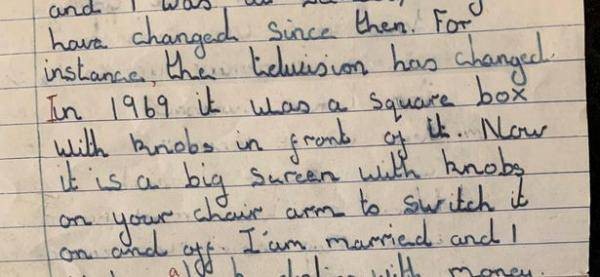 and I was
have changed since then. For
instance, the television has changed.
In 1969 it was a square box
with knobs in front of it. Now
it is a big screen with knobs
on your chair arm to switch it
on and off. I'am married and I
with money